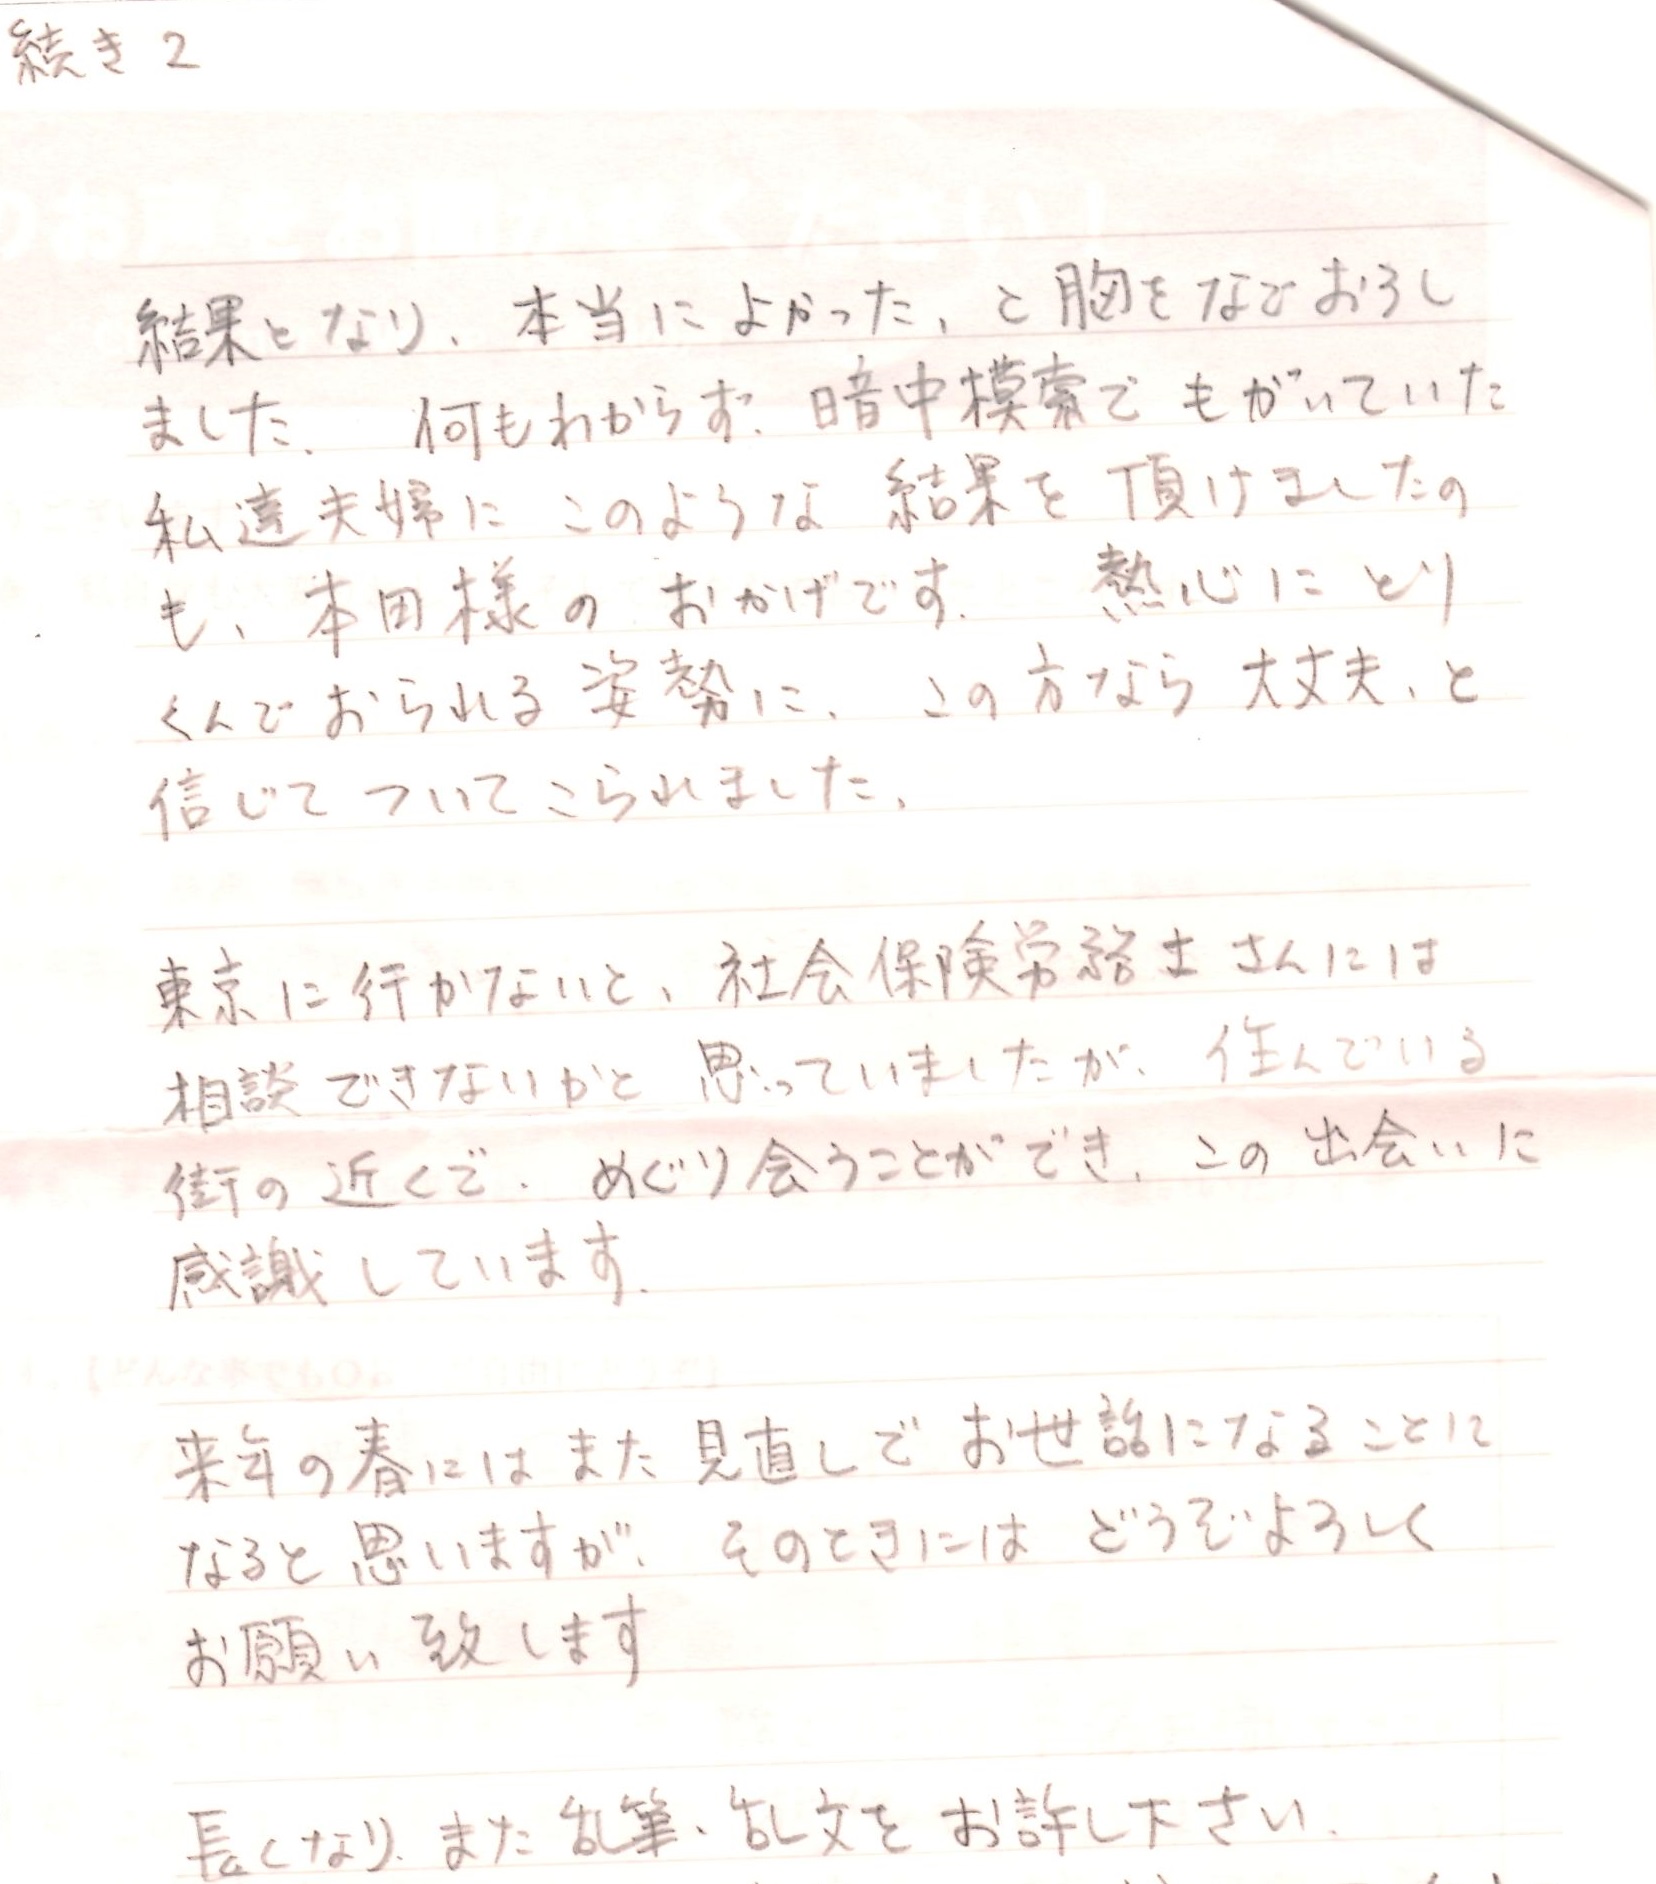 続き2
結果となり、本当によかった、と胸をなでおろし
ました。何もわからず、暗中模索でもがいていた
私達夫婦にこのような結果を頂けましたの
も、本田様のおかげです。熱心にとり
くんでおられる姿勢に、この方なら大丈夫、と
信じてついてこられました。
東京に行かないと、社会保険労務士さんには
相談できないかと思っていましたが、住んでいる
街の近くで、めぐり会うことができ、この出会いに
感謝しています。
来年の春にはまた見直しでお世話になることに
なると思いますが、そのときにはどうぞよろしく
お願い致します
長くなり、また乱筆、乱文をお許し下さい。